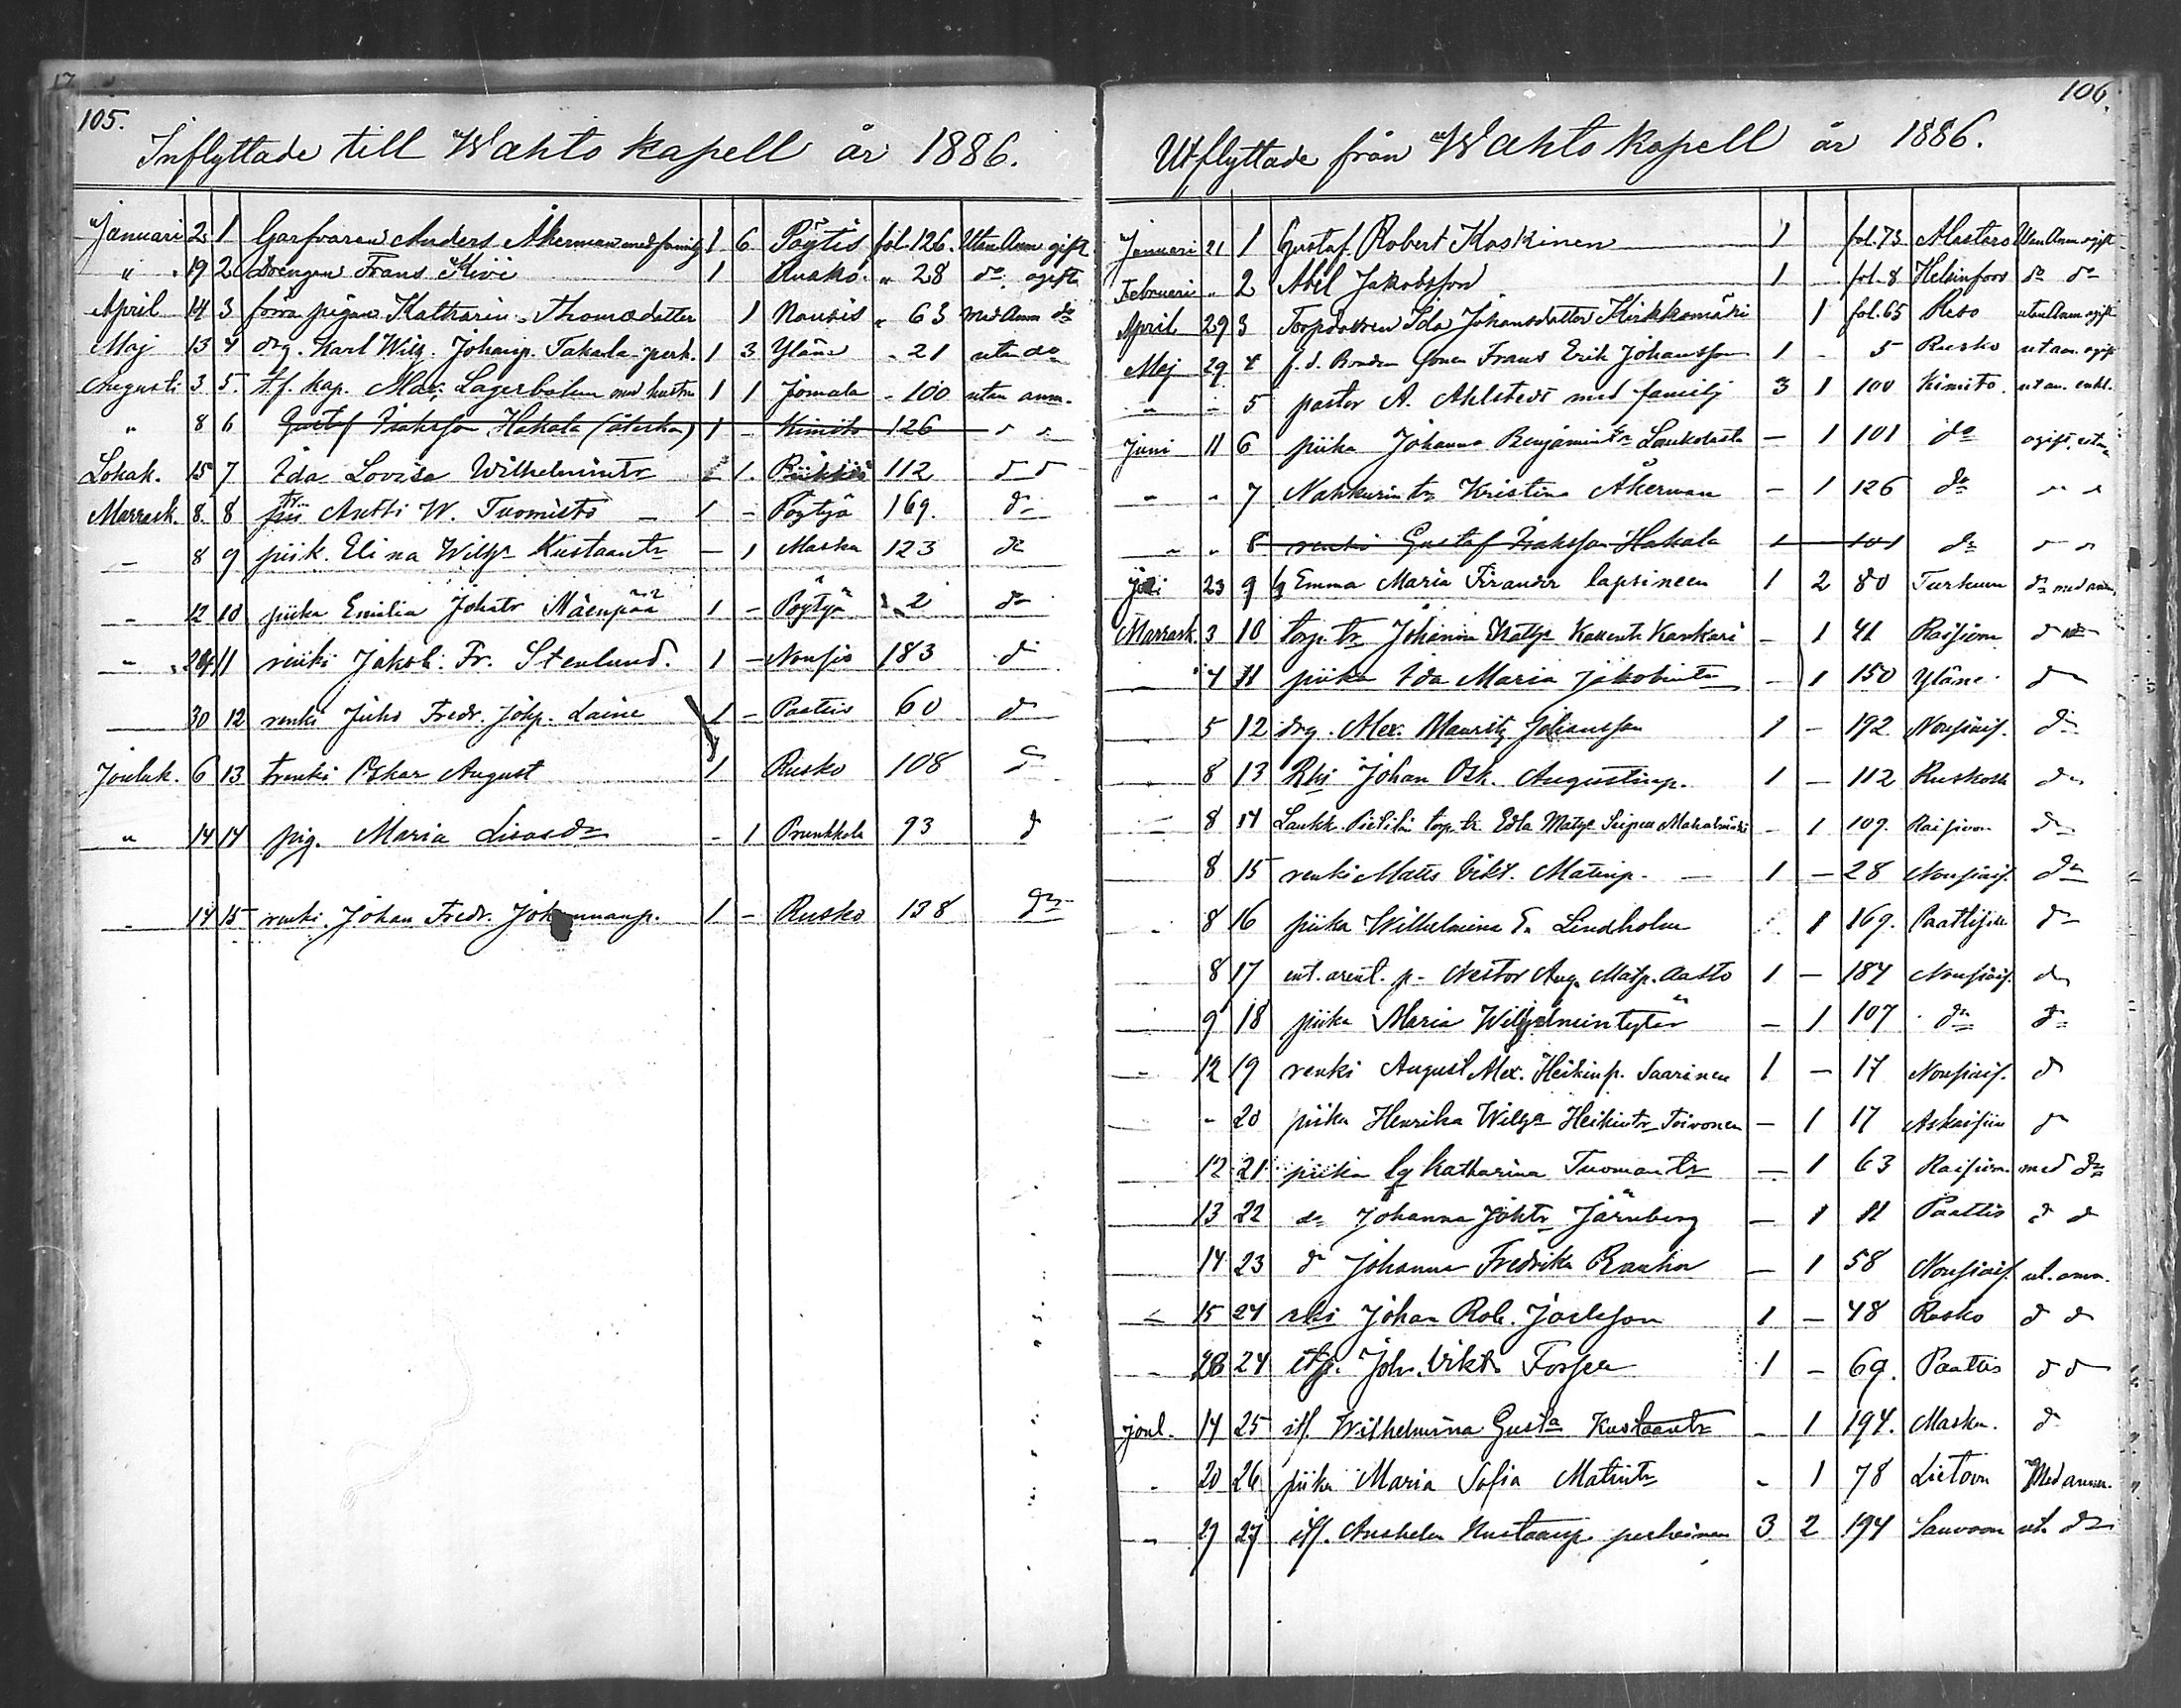 105.
Inflyttade till Wahto kapell år 1886.
Januari 2 1 Garfvaren Anders Åkerman med familj 1 6 Pöytis fol. 126. Utan Anm gift
" 19 2 Drengen Frans Kivi 1 Rusko. " 28 do. ogift
April 14 3 förra pigan Katharin. Thomasdotter 1 Nousis " 63 Med Anm do
Maj 13 4 drg. Karl Wilh. Johansp. Takala perh. 1 3 Yläne " 21 utan do
Augusti 3 5. t.f. kap. Max. Lagerbohm med hustru 1 1 Jomala " 100 utan anm.
" 8 6 Gustaf Isaksson Hakala 1 - Kimito 126
Lokak. 15 7 Ida Lovisa Wilhelmintr - 1. Piikkiö 112 d d
Marrask. 8. 8 Antti W. Tuomisto - 1 - Pöytyä 169. do
- 8 9 piik. Elina Wilhа Kustaantr - 1 Masku 123 do
- 12 10 piika Emilia Johatr Mäenpää 1 - Pöytyä 2 do
" 24 11 renki Jakob. Fr. Stenlund. 1 - Nousis 183 do
30 12 renki Juho Fredr. Johp. Laine 1 - Paattis 60 do
Jouluk. 6 13 trenki Oskar August 1 Rusko 108 do
" 14 14 pig. Maria Lisasdr - 1 Prunkkala 93 d
" 14 15 renki Johan Fredr. 1 - Rusko 138 do
106.
Utflyttade från Wahto kapell år 1886.
Januari 21 1 Gustaf Robert Koskinen 1 fol. 73 Alastaro Utan Anm ogift
Februari " 2 Abel Jakobsson 1 fol. 8 Helsinfors do do
April 29 3 Torpdottren Ida Johansdotter Kirkkomäki 1 fol. 65 Reso utan Anm ogift
Maj 29 4 f. d. Bonden sonen Frans Erik Johansson 1 - 5 Rusko ut an. ogift
" " 5 pastor A. Ahlstedt med familj 3 1 100 Kimito. ut an.
Juni 11 6 piika Johanna Benjamintr - 1 101 do ogift, utan
" " 7 Nahkurin tr Kristina Åkerman - 1 126 do " "
" " 8 renki Gustaf Isaksson Hakala 1 101 do
23 9 Emma Maria lapsineen 1 2 80 Turkuun do med anm
Marrask. 3 10 torp. tr Johanna - 1 41 Raisioon d
" 4 11 piika Ida Maria Jakobintr - 1 150 Yläne do
5 12 drg. Alex. Mauritz Johansson 1 - 192 Nousiais. do
8 13 Rki Johan Osk. Augustinp. 1 - 112 Ruskolle do
8 14 torp. tr. Edla - 1 109. Raisioon do
8 15 renki Matts Vikt. Matinp. - 1 - 28 Nousiais. do
8 16 piika Wilhelmina E. Lindholm 1 169. do
8 17 ent. arent. p. Nestor Aug. Matp. Aalto 1 - 184 Nousiais. do
9 18 piika Maria Wilhelmintytär - 1 107 do do
12 19 renki August Alex. Heikinp. Saarinen 1 - 17 Nousiais. do
" 20 piika Henrika Wilha Heikintr Toivonen - 1 17 do
12 21 piika Katharina Tuomantr - 1 63 Raisioon med do
13 22 do Johanna Johtr Järnberg - 1 11 Paattis d d
14 23 do Johanna Fredrika - 1 58 Nousiais. ut. anm.
15 24 rki Johan Rob. 1 - 48 Rusko d d
28 24 Joh. Vikt. 1 - 69. Paattis d d
joul. 14 25 itl. Wilhelmina Gusta Kustaantr - 1 194. Masku. do
" 20 26 piika Maria Sofia Matintr - 1 78 Lietoon Med anm.
" 29 27 itl. Anshelm Kustaanp. perheineen 3 2 194 Sauvoon ut. do